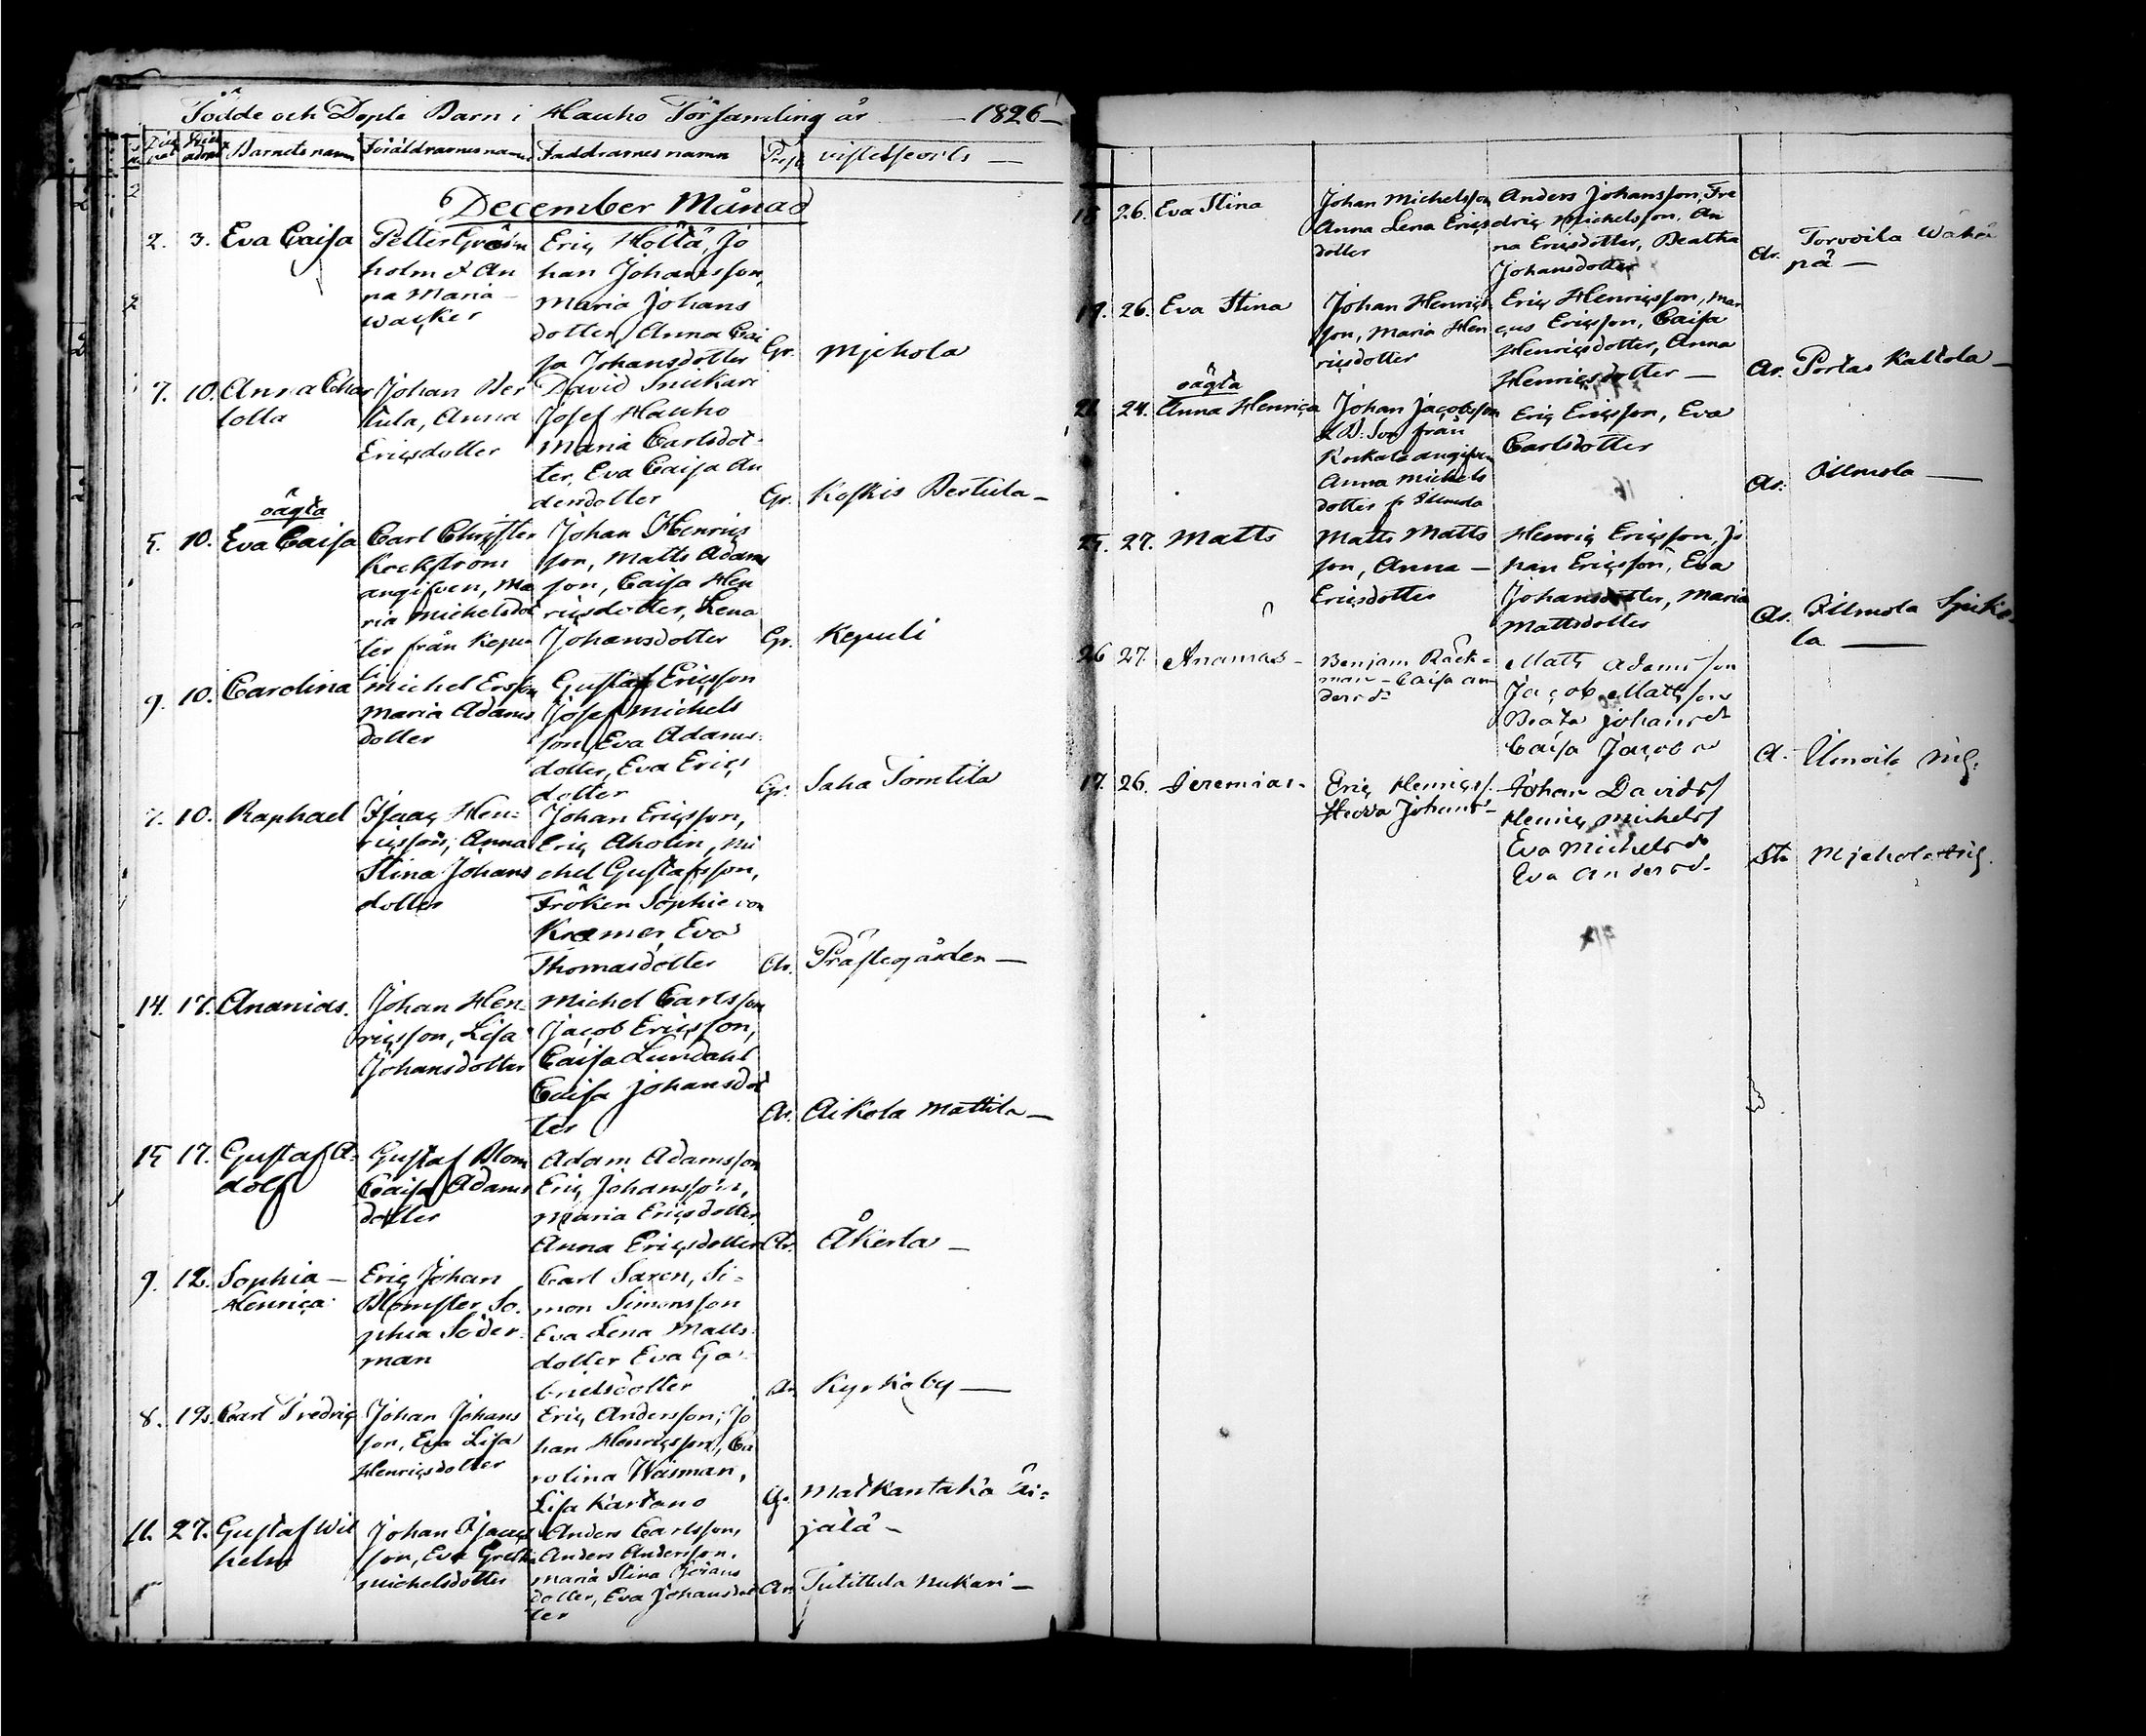 Födde och Döpte Barn i Hauho Församling år — 1826 —
Barnets namn Föräldrarnes namn Faddrarnes namn Prest vistelseorts —
December Månad
2. 3. Eva Caisa
Petter Grön
holm & An
na Maria
Wacker
Eric Höltä, Jo
han Johansson,
Maria Johans
dotter, Anna Cai
sa Johansdotter
Gr. Mjehola
7. 10. Anna Char
lotta
Johan Ber
tula, Anna
Ericsdotter
David Snickari
Josef Hauho
Maria Carlsdot-
ter, Eva Caisa An
dersdotter
Gr. Koskis Bertula —
oägta
5. 10. Eva Caisa
Carl Christer
Kockström
angifven, Ma
ria Michelsdot
ter från Kepu
li
Johan Henrics
son, Matts Adams
son, Caisa Hen
ricsdotter, Lena
Johansdotter
Gr. Kepuli
9. 10. Carolina
Michel Ersson
Maria Adams
dotter
Gustaf Ericsson
Josef Michels
son, Eva Adams-
dotter, Eva Erics
dotter
Gr. Saha Tomtila
7. 10. Raphael
Isaac Hen-
ricsson, Anna
Stina Johans
dotter
Johan Ericsson,
Eric Aholin, Mi
chel Gustafsson,
Fröken Sophie von
Kræmer, Eva
Thomasdotter
Ar. Prästegården —
14. 17. Ananias.
Johan Hen-
ricsson, Lisa
Johansdotter
Michel Carlsson
Jacob Ericsson,
Caisa Lundahl
Caisa Johansdot
ter
Ar. Aikola Mattila —
15 17. Gustaf A-
dolf
Gustaf Blom
Caisa Adams
dotter
Adam Adamsson
Eric Johansson,
Maria Ericsdotter,
Anna Ericsdotter
Ar. Åkerla —
9. 12. Sophia —
Henrica
Eric Johan
Blomster, So-
phia Söder-
man
Carl Saxen, Si-
mon Simonsson
Eva Lena Matts-
dotter Eva Ga-
brielsdotter
Ar. Kyrkoby —
8. 19. Carl Fredric
Johan Johans
son, Eva Lisa
Henricsdotter
Eric Andersson, Jo
han Henricsson, Ca
rolina Waisman,
Lisa Kartano
G. Matkantaka Äi-
jälä —
11. 27. Gustaf Wil
helm
Johan Isaacs
son, Eva Greta
Michelsdotter
Anders Carlsson,
Anders Andersson,
Maria Stina Johans
dotter, Eva Johansdot
ter
Ar. Tutittula Nukari —
18. 26. Eva Stina
Johan Michelsson
Anna Lena Erics
dotter
Anders Johansson, Fre
dric Michelsson, An
na Ericsdotter, Beatha
Johansdotter
Ar. Torvoila Wähä
pä —
19. 26. Eva Stina
Johan Henrics
son, Maria Hen
ricsdotter
Eric Henricsson, Mar
cus Ericsson, Caisa
Henricsdotter, Anna
Henricsdotter —
Ar. Portas Kattola —
oägta
21. 24. Anna Henrica
Johan Jacobsson
från
angifven
Anna Michels
dotter fr Illmola
Eric Ericsson, Eva
Carlsdotter
Ar. Illmola —
25. 27. Matts
Matts Matts
son, Anna —
Ericsdotter
Henric Ericsson, Jo
han Ericsson, Eva
Johansdotter, Maria
Mattsdotter
Ar. Illmola Spika-
la —
26 27. Ananias —
Benjam Räck-
man — Caisa An
dersd:
Matts Adamsson
Jacob Mattsson
Beata Johansd
Caisa Jacobs
A. Ilmoila
17. 26. Jeremias —
Eric Henricss.
Hedda Johans —
Johan Davidss
Henric Michelss
Eva Michelsd
Eva Andersd.
Mjehola